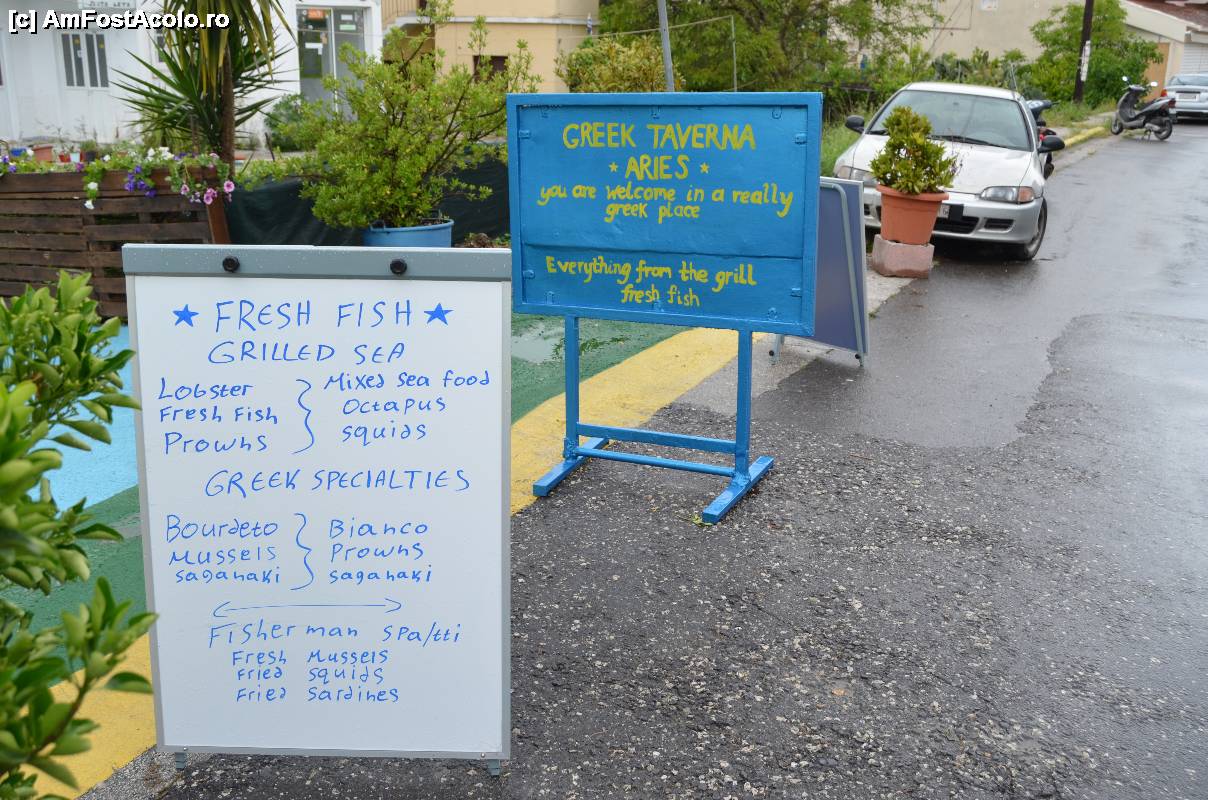 [c] AmFostAcolo.ro
GREEK TAVERNA
* ARIES *
you are welcome in a really
greek place
Everything from the grill
fresh fish
★ FRESH FISH ★
GRILLED SEA
Lobster } Mixed sea food
Fresh Fish } Octapus
Prowns } squids
GREEK SPECIALTIES
Bourdeto } Bianco
Mussels } Prowns
saganaki } saganaki
Fisherman spa/tti
Fresh Mussels
Fried squids
Fried sardines